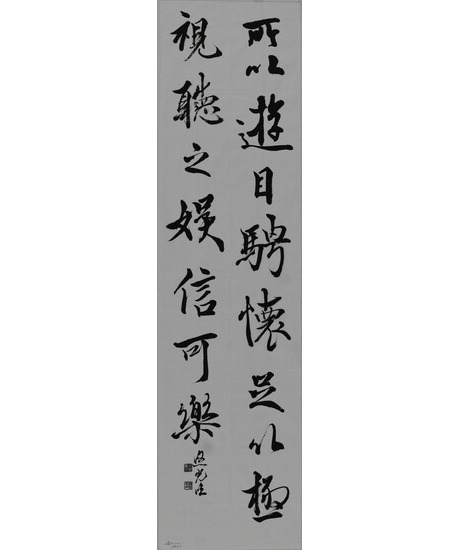 所以遊目騁懷足以極
視聽之娛信可樂